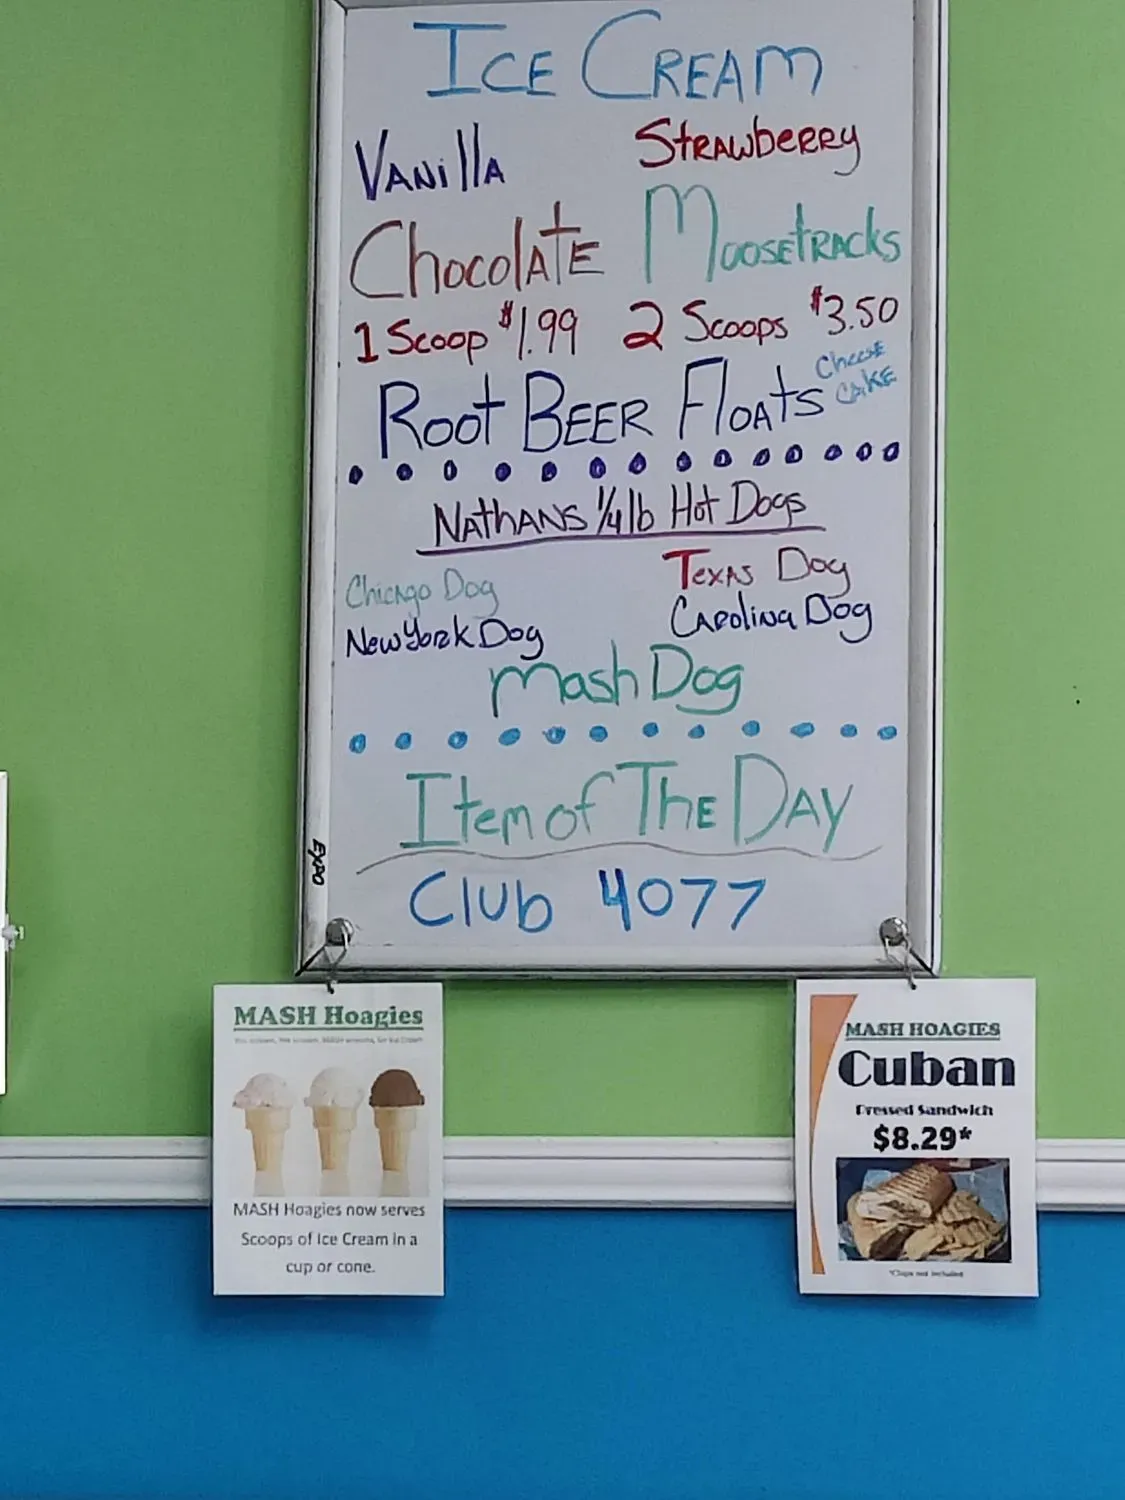 ICE CREAM
VANillA StRAWbERRy
ChocolATE MOOSETRACKS
1 Scoop $1.99 2 Scoops $3.50
ROOt BEER FlOAtS CheesE CAKE
NAthANS 1/4 lb Hot Dogs
ChicAgo Dog TexAs Dog
New YoRk Dog CARoliNA Dog
Mash Dog
Item of ThE DAY
Club 4077
EXPO
MASH Hoagies
MASH Hoagies now serves
Scoops of Ice Cream in a
cup or cone.
MASH HOAGIES
Cuban
Pressed Sandwich
$8.29*
*Chips not included